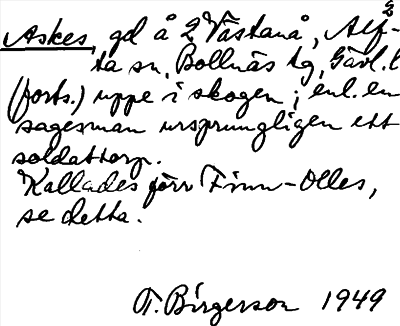 Askes, gd å 2 Västanå, Alf-
ta sn, Bollnäs tg, Gävl. l
(forts.) uppe i skogen; enl. en
sagesman ursprungligen ett
soldattorp.
Kallades förr Finn-Olles,
se detta.
T. Birgerson 1949